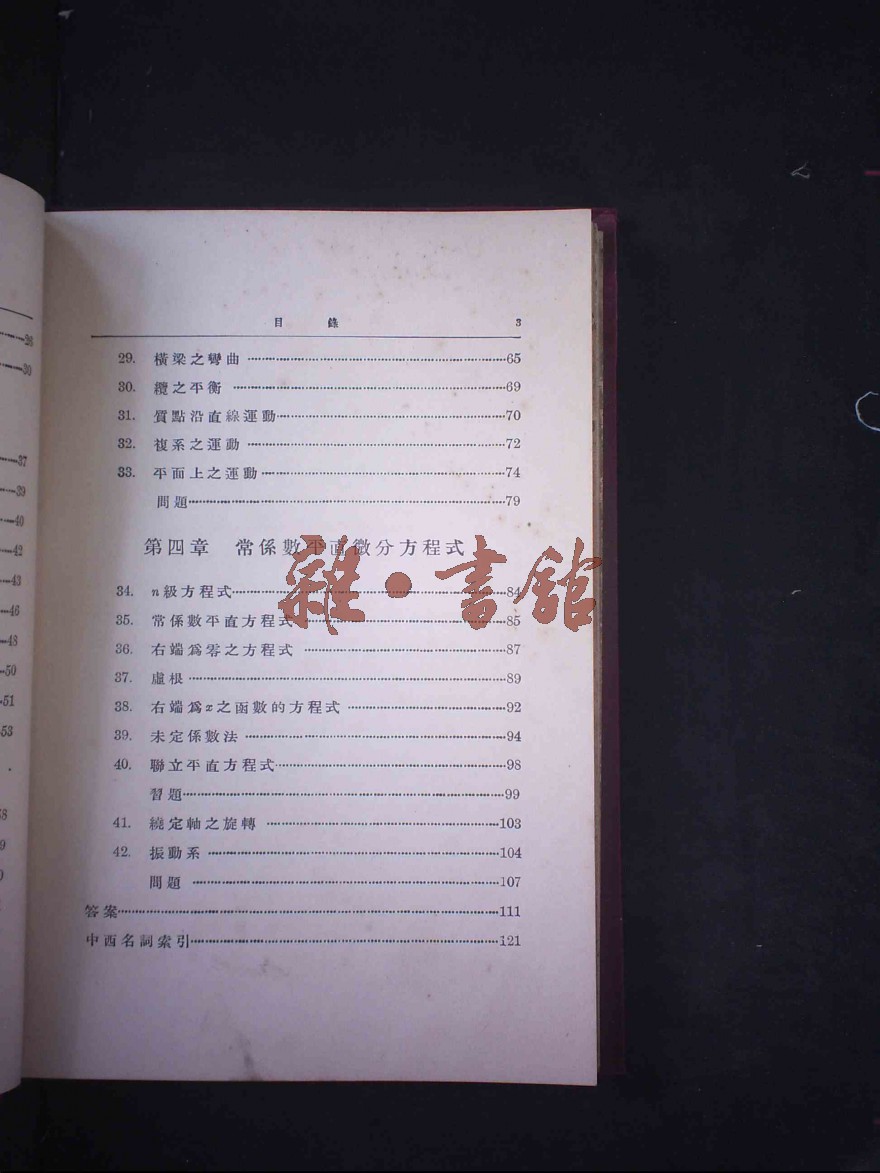 目錄 3
29. 橫梁之彎曲 65
30. 纜之平衡 69
31. 質點沿直線運動 70
32. 複系之運動 72
33. 平面上之運動 74
問題 79
第四章 常係數平直微分方程式
34. n級方程式 84
35. 常係數平直方程式 85
36. 右端爲零之方程式 87
37. 虛根 89
38. 右端爲x之函數的方程式 92
39. 未定係數法 94
40. 聯立平直方程式 98
習題 99
41. 繞定軸之旋轉 103
42. 振動系 104
問題 107
答案 111
中西名詞索引 121
雜·書館
28
30
37
39
40
42
43
46
48
50
51
53